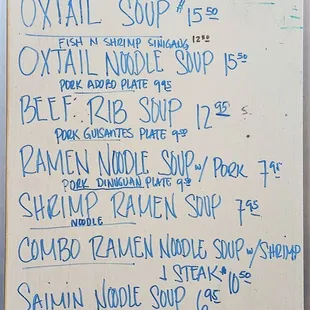 OXTAIL SOUP $15.50
FISH N SHRIMP SINIGANG 12.90
OXTAIL NOODLE SOUP 15.50
PORK ADOBO PLATE 9.95
BEEF RIB SOUP 12.95
PORK GUISANTES PLATE 9.50
RAMEN NOODLE SOUP w/ PORK 7.95
PORK DINUGUAN PLATE 9.50
SHRIMP RAMEN SOUP 7.95
NOODLE
COMBO RAMEN NOODLE SOUP w/ SHRIMP
STEAK 10.50
SAIMIN NOODLE SOUP 6.95